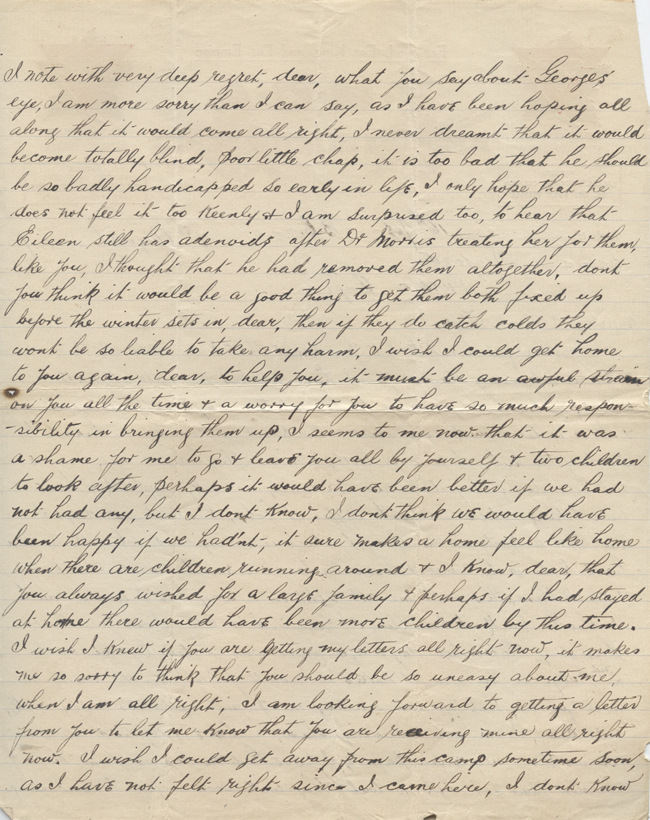 I note with very deep regret, dear, what you say about Georges'
eye, I am more sorry than I can say, as I have been hoping all
along that it would come all right, I never dreamt that it would
become totally blind, poor little chap, it is too bad that he should
be so badly handicapped so early in life, I only hope that he
does not feel it too keenly & I am surprised too, to hear that
Eileen still has adenoids after Dr Morris treating her for them,
like you, I thought that he had removed them altogether, dont
you think it would be a good thing to get them both fixed up
before the winter sets in, dear, then if they do catch colds they
wont be so liable to take any harm, I wish I could get home
to you again, dear, to help you, it must be an awful strain
on you all the time & a worry for you to have so much respon-
-sibility in bringing them up, I seems to me now that it was
a shame for me to go & leave you all by yourself & two children
to look after, perhaps it would have been better if we had
not had any, but I dont know, I dont think we would have
been happy if we had'nt, it sure makes a home feel like home
when there are children running around & I know, dear, that
you always wished for a large family & perhaps if I had stayed
at home there would have been more children by this time.
I wish I knew if you are getting my letters all right now, it makes
me so sorry to think that you should be so uneasy about me,
when I am all right, I am looking forward to getting a letter
from you to let me know that you are receiving mine all right
now. I wish I could get away from this camp sometime soon,
as I have not felt right since I came here, I dont know